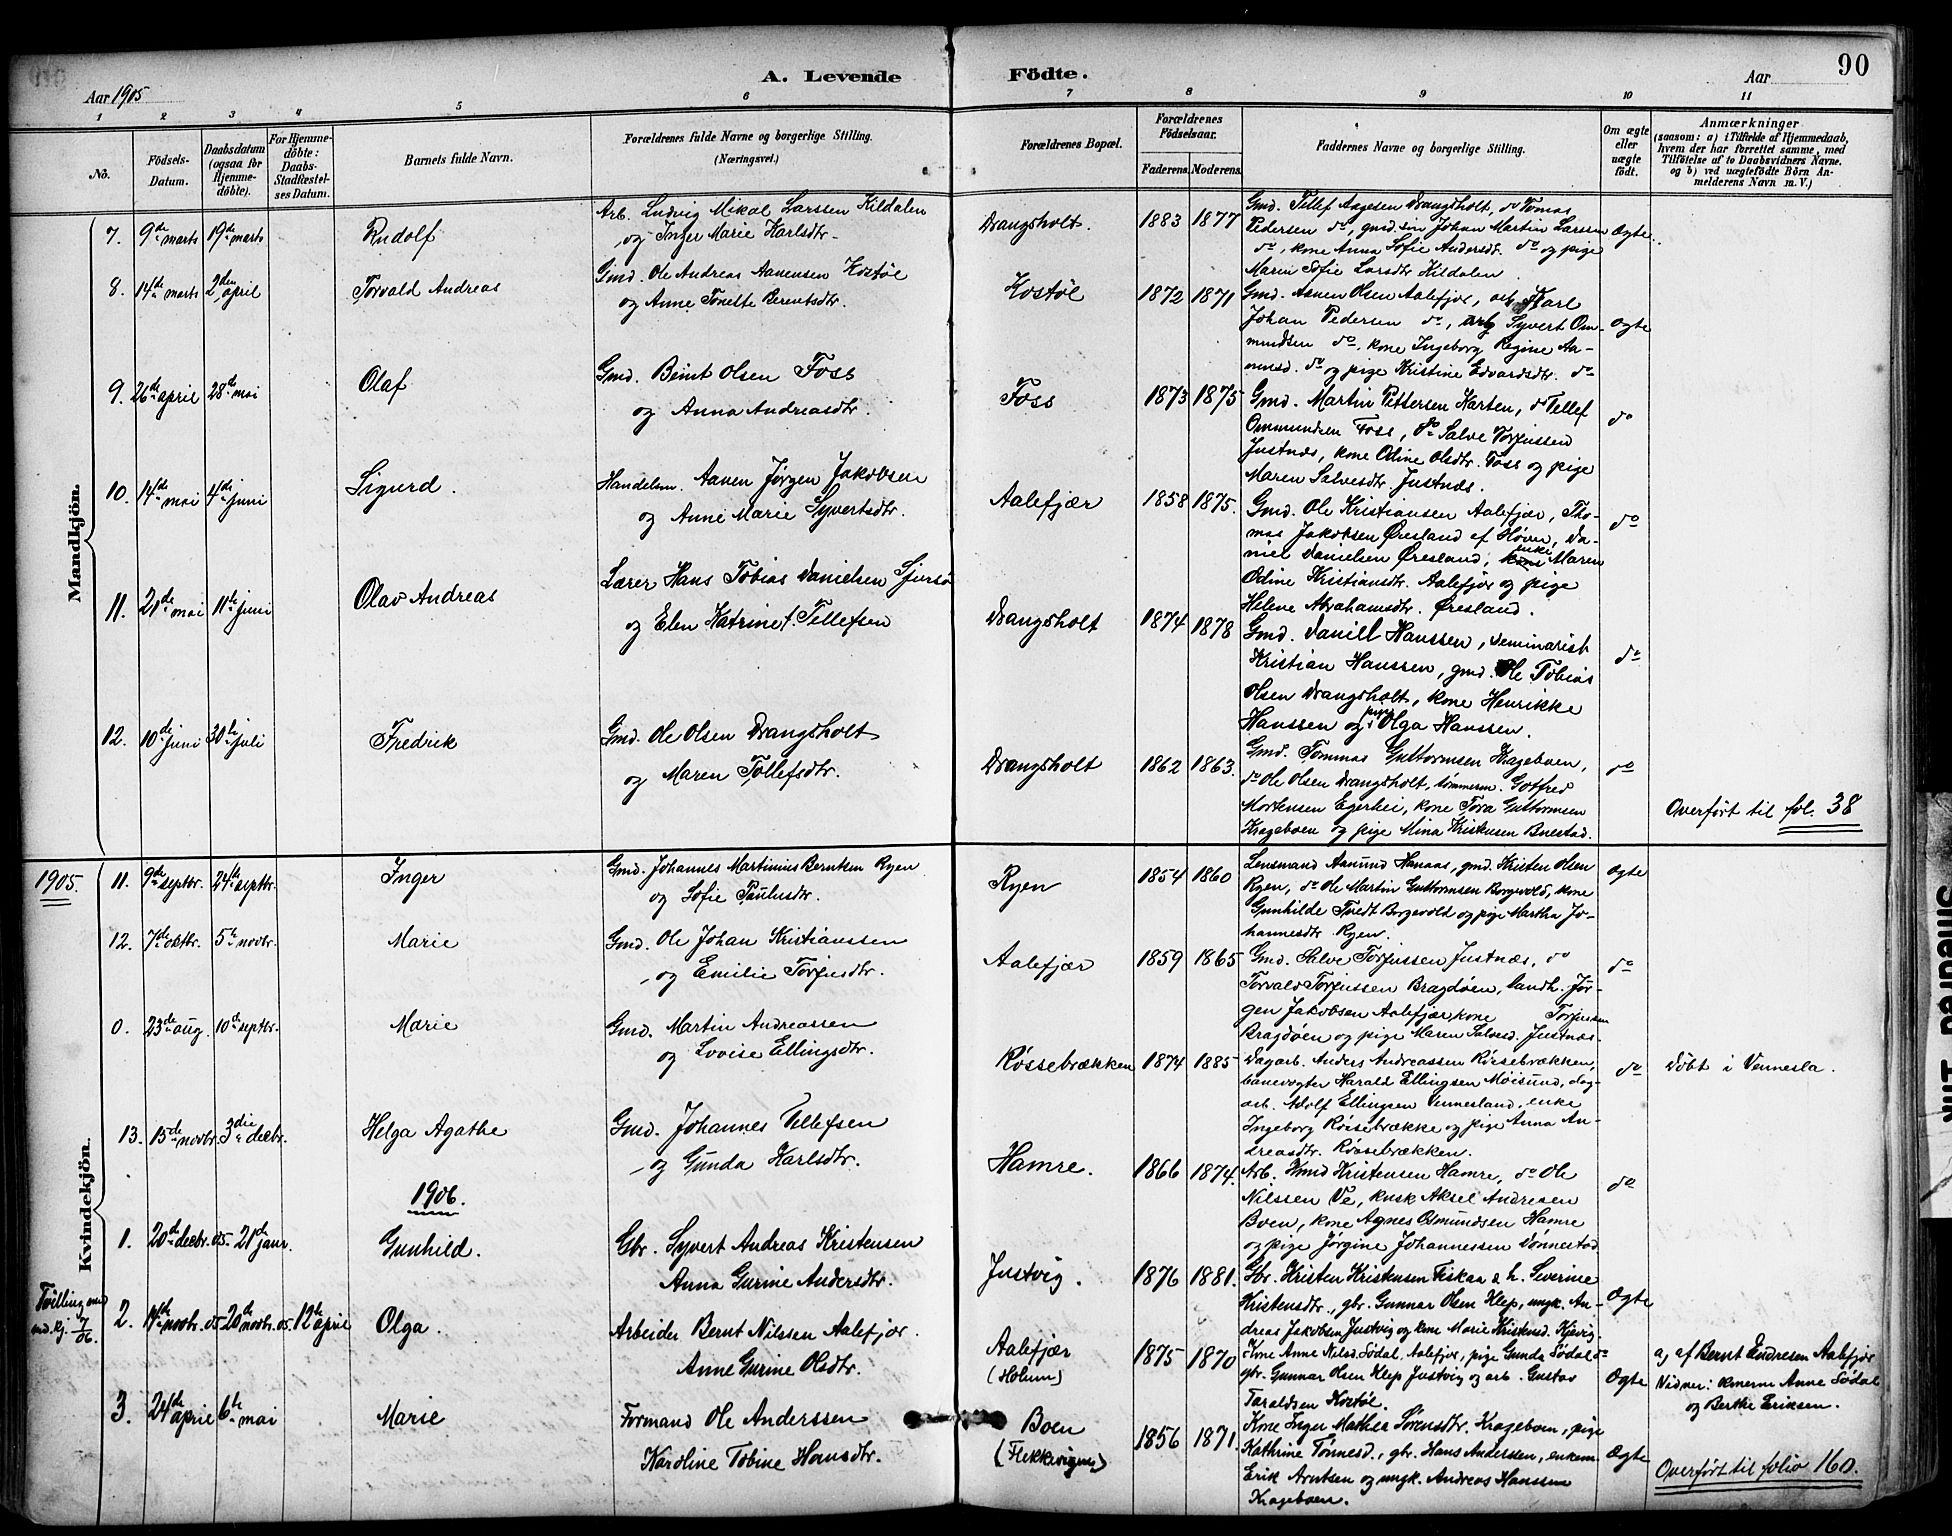 A. Levende Födte.
90
Aar 1905
Aar
1 2 3 4 5 6 7 8 9 10 11
No.
Födsels-Datum.
Daabsdatum (ogsaa for Hjemme-döbte).
For Hjemme-döbte: Daabs-Stadfæstel-ses Datum.
Barnets fulde Navn.
Forældrenes fulde Navne og borgerlige Stilling.
(Næringsvei.)
Forældrenes Bopæl.
Forældrenes Födselsaar.
Faderens. Moderens.
Faddernes Navne og borgerlige Stilling.
Om ægte eller uægte födt.
Anmærkninger
(saasom: a) i Tilfælde af Hjemmedaab,
hvem der har forrettet samme, med
Tilföielse af to Daabsvidners Navne.
og b) ved uægtefödte Börn An-
melderens Navn m. V.)
Mandkjön.
7. 9de marts 19de marts Rudolf
Arb. Ludvig Mikal Larssen Kildalen
og Inger Marie Karlsdtr.
Drangsholt. 1883 1877
Gmd. Tellef Aagesen Drangsholt, do Tomas
Pedersen do, gmd. søn Johan Martin Larssen
do, kone Anna Sofie Andersdt. do og pige
Maren Sofie Larsdtr Kildalen.
Ægte.
8. 14de marts 2den april Torvald Andreas
Gmd. Ole Andreas Aanensen Kostøl
og Anne Tonette Berentsdtr.
Kostøl 1872 1871
Gmd. Aanen Olsen Aalefjær, arb. Karl
Johan Pedersen do, arb Syvert Om-
mundsen do, kone Ingeborg Regine Aa-
nensd. do og pige Kristine Edvardsdtr. do
Ægte
9. 26de april 28de mai Olaf
Gmd. Bernt Olsen Foss
og Anna Andreasdtr.
Foss 1873 1875
Gmd. Martin Pettersen Karten, do Tellef
Ommundsen Foss, do Salve Torjussen
Justnæs, kone Odine Olsdtr. Foss og pige
Maren Salvesdtr. Justnæs.
do
10. 14de mai 4de juni Sigurd.
Handelsm. Aanen Jørgen Jakobsen
og Anne Marie Syvertsdtr.
Aalefjær 1858 1875.
Gmd. Ole Kristiansen Aalefjær, Tho-
mas Jakobsen Øresland af Høvn, Da-
niel Danielsen Øresland, enke Maren
Odine Kristiansdtr. Aalefjær og pige
Helene Abrahamsdtr. Øresland.
do
11. 21de mai 11te juni Olav Andreas
Lærer Hans Tobias Danielsen
og Elen Katrine f. Tellefsen
Drangsholt 1874 1878
Gmd. Daniel Hanssen, seminarist
Kristian Hanssen, gmd. Ole Tobias
Olsen Drangsholt, kone Henrikke
Hanssen og pige Olga Hanssen.
do
12. 10de juni 30te juli Fredrik
Gmd. Ole Olsen Drangsholt
og Maren Tollefsdtr.
Drangsholt 1862 1863.
Gmd. Tommas Guttormsen Krageboen,
do Ole Olsen Drangsholt, tømmerm. Gotfred
Mortensen Egerhei, kone Tora Guttormsen
Krageboen og pige Mina Kristensen Bnestad.
do
Overført til fol. 38
Kvindekjön.
1905. 11. 9de septbr. 24de septbr. Inger
Gmd. Johannes Martinius Berntsen Ryen
og Sofie Paulusdtr.
Ryen 1854 1860
Lensmand Aanund Hanaas, gmd. Kristen Olsen
Ryen, do Ole Martin Guttormsen Borgevold, kone
Gunhilde Tvedt Borgevold og pige Martha Jo-
hannesdtr. Ryen.
Ægte
12. 7de oktbr. 5te novbr. Marie
Gmd. Ole Johan Kristianssen
og Emilie Torjusdtr.
Aalefjær 1859 1865
Gmd. Salve Torjussen Justnæs, do
Torvald Torjussen Bragdøen, landh. Jør-
gen Jakobsen Aalefjær, kone Torjussen
Bragdøen og pige Maren Salvesd. Justnæs.
do
0. 23de aug. 10de septbr. Marie
Gmd. Martin Andreassen
og Lovise Ellingsdtr.
Røssebrækken 1874 1885
Dagarb. Anders Andreassen Røssebrækken,
banevogter Harald Ellingsen Moisund, dag-
arb. Adolf Ellingsen Vennesland, enke
Ingeborg Røssebrække og pige Anna An-
dreasdtr. Røssebrækken.
do
Døbt i Vennesla.
13. 15de novbr. 3die decbr. Helga Agathe
Gmd. Johannes Tellefsen
og Gunda Karlsdtr.
Hamre. 1866 1874.
Arb. Knud Kristensen Hamre, do Ole
Nilssen Ve, kusk Aksel Andresen
Boen, kone Agnes Osmundsen Hamre
og pige Jørgine Johannessen Dønnestad
do
1906.
1. 20de decbr. 05. 21de janr. Gunhild.
Gbr. Syvert Andreas Kristensen
Anna Gurine Andersdtr.
Justvig. 1876 1881.
Gbr. Kristen Kristensen Fiskaa & h. Severine
Kristensdtr., gbr. Gunnar Olsen Klep, ungk. An-
dreas Jakobsen Justvig og kone Marie Kristensd. Kjevig.
Ægte
Tvilling med
md. kj. 7/06
2. novbr. 05 20de novbr. 05. 12te april Olga.
Arbeider Bernt Nilssen Aalefjær.
Anne Gurine Olsdtr.
Aalefjær
(Holum) 1875 1870
Kone Anne Nilsd. Sødal, Aalefjær, pige Gunda Sødal do
gbr. Gunnar Olsen Klep Justvig og arb. Gustav
Taraldsen Kostøl.
Ægte
a, af Bernt Endresen Aalefjær
Vidner: konerne Anne Sødal
og Berthe Eriksen.
3. 24de april 6te mai Marie
Formand Ole Anderssen
Karoline Tobine Hansdtr.
Boen
1856 1871.
Kone Inger Mathea Sørensdtr. Krageboen, pige
Kathrine Tønnesd., gbr. Hans Anderssen, enkem.
Erik Arntsen og ungk. Andreas Hanssen
Krageboen.
Ægte
Overført til folio 160.